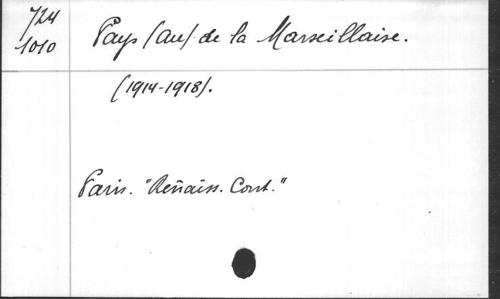 724
1010
Pays (au) de la Marseillaise.
(1914-1918).
Paris. "Renaiss. Cont."